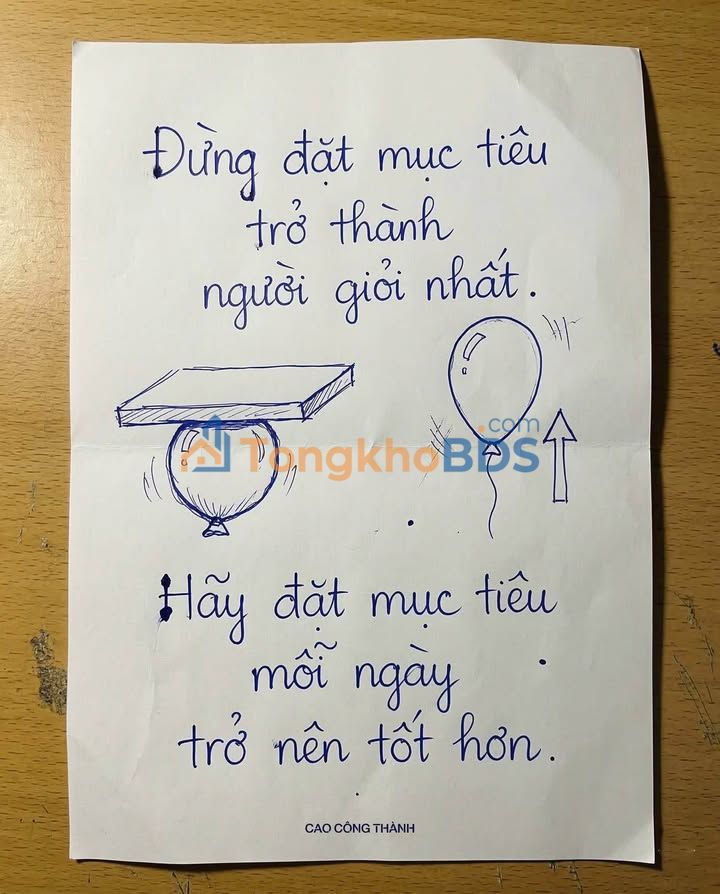 Đừng đặt mục tiêu
trở thành
người giỏi nhất.
TongkhoBDS
.com
Hãy đặt mục tiêu
mỗi ngày
trở nên tốt hơn.
CAO CÔNG THÀNH